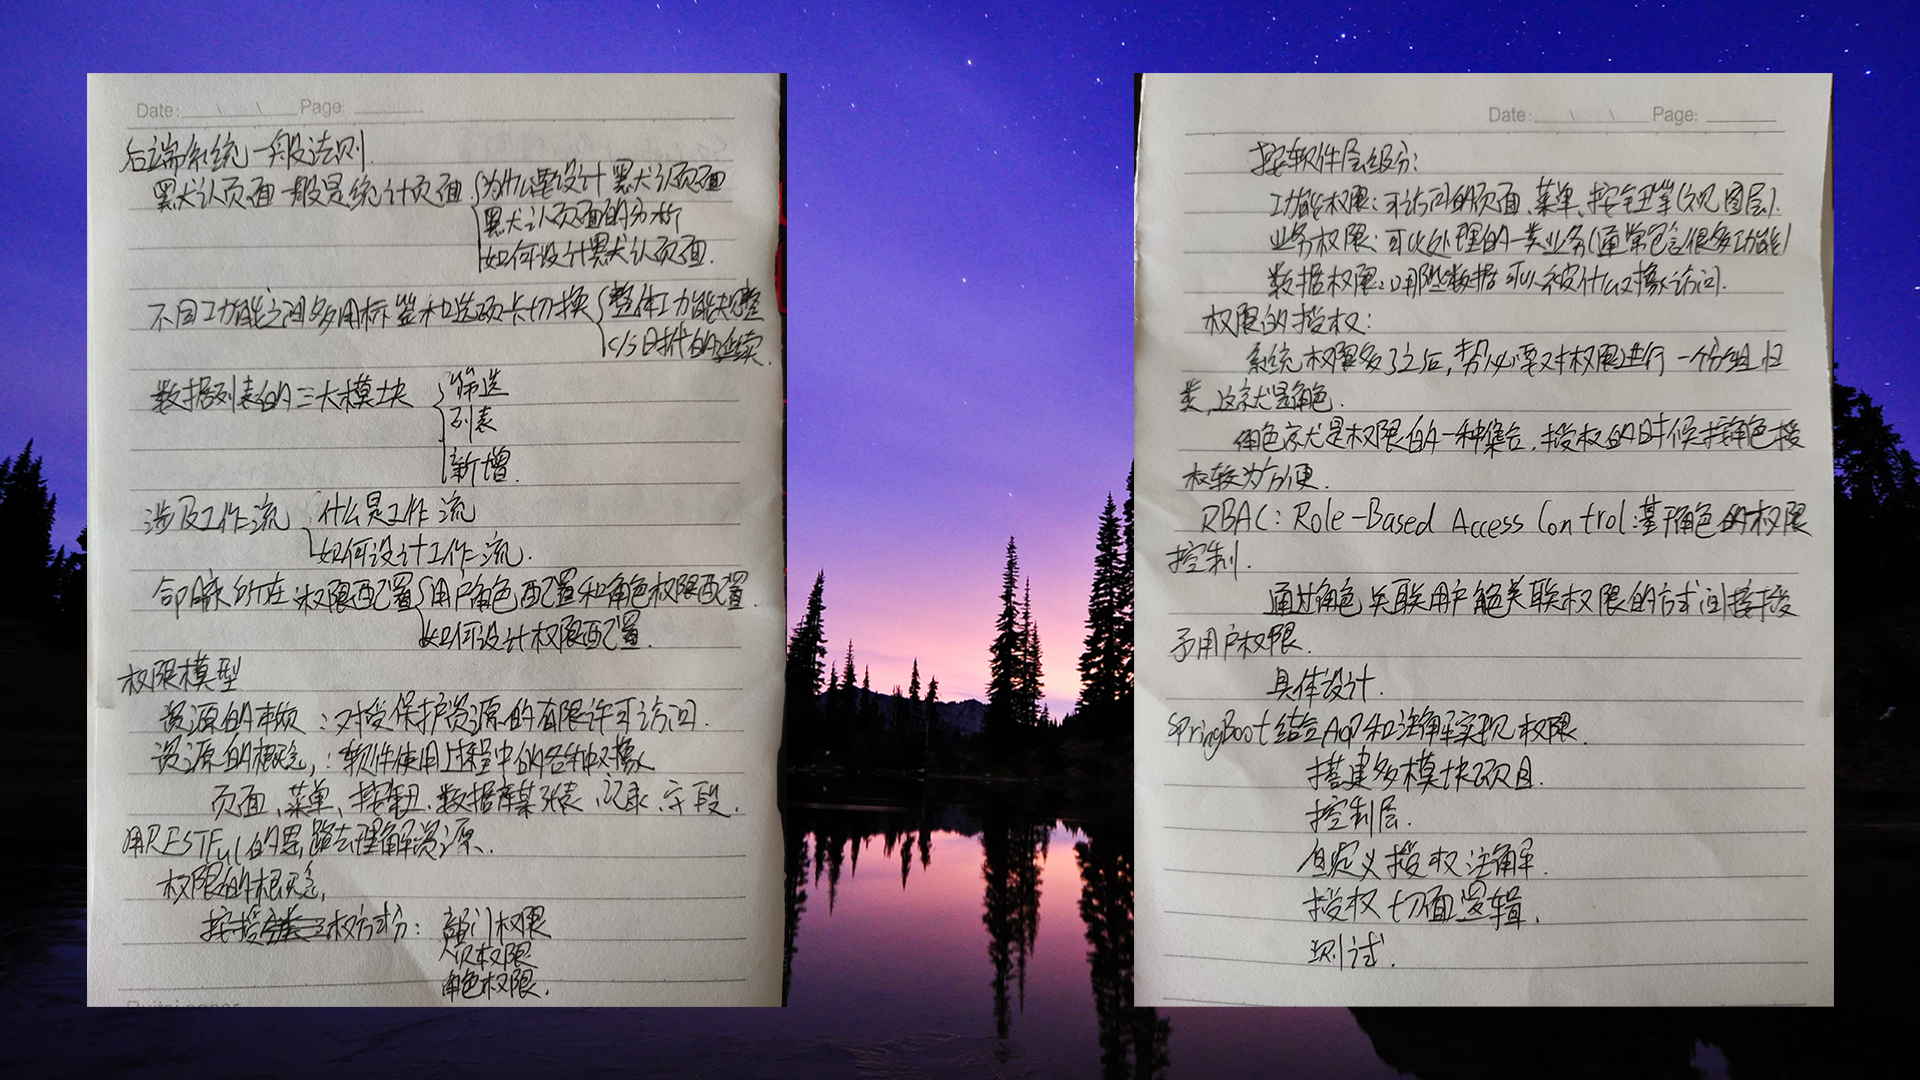 Date: Page:
后端系统一般法则.
默认页面一般是统计页面
为什么要设计默认页面
默认页面的分析
如何设计默认页面.
不同功能之间多用标签和选项卡切换
整体功能规整
C/S时代的延续.
数据列表的三大模块
筛选
列表
新增.
涉及工作流
什么是工作流
如何设计工作流.
命脉所在:权限配置
用户角色配置和角色权限配置.
如何设计权限配置.
权限模型
资源的事项:对受保护资源的有限许可访问.
资源的概念,:软件使用过程中的各种对象
页面、菜单、按钮、数据库某张表、记录、字段.
用RESTFul的思路去理解资源.
权限的概念,
按授权方式分:
部门权限
个人权限
角色权限.
Date: Page:
按软件层级分:
功能权限:可访问的页面、菜单、按钮等(视图层).
业务权限:可以处理的一类业务(通常包含很多功能)
数据权限:哪些数据可以被什么对象访问.
权限的授权:
系统权限多了之后,势必要对权限进行一个分组归
类,这就是角色.
角色就是权限的一种集合.授权的时候按角色授
权较为方便.
RBAC: Role-Based Access Control:基于角色的权限
控制.
通过角色关联用户角色关联权限的方式间接授
予用户权限.
具体设计.
SpringBoot结合AOP和注解实现权限.
搭建多模块项目.
控制层.
自定义授权注解.
授权切面逻辑.
测试.